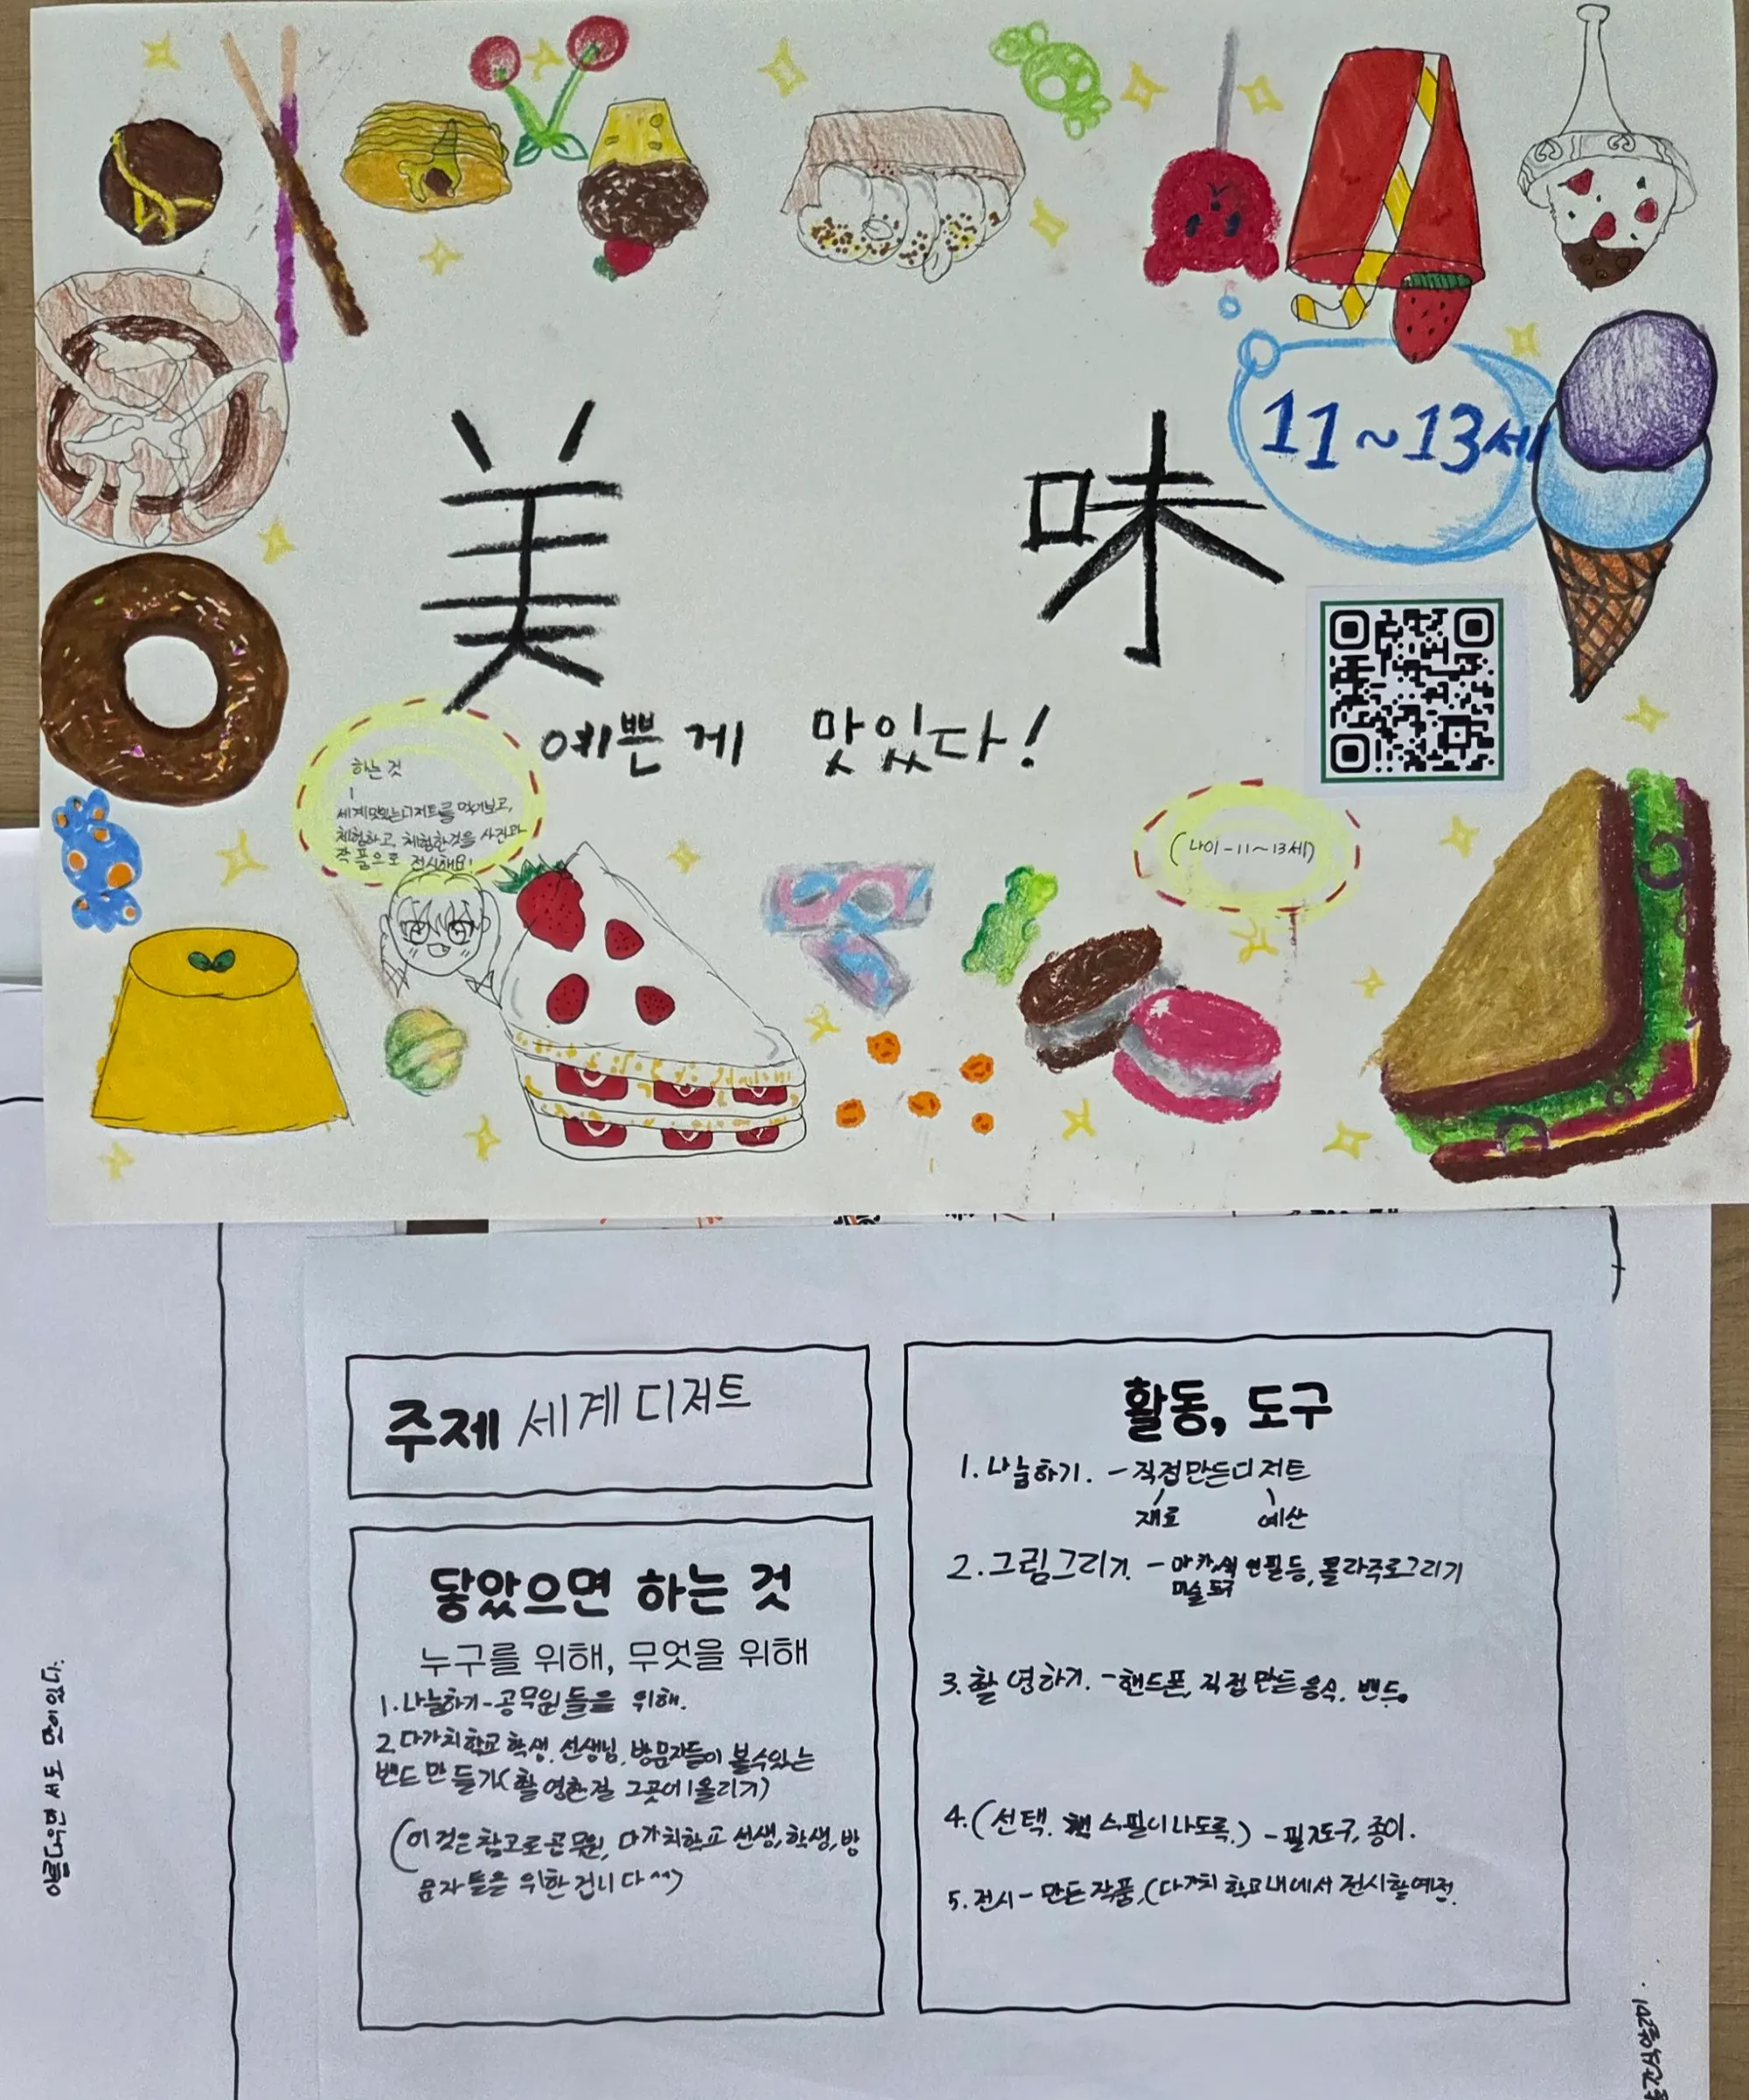 美 味
11~13세
예쁜 게 맛있다!
하는 것
세계 맛있는 디저트를 먹어보고,
체험하고, 체험한것을 사진과
작품으로 전시해요!
(나이-11~13세)
주제 세계 디저트
닿았으면 하는 것
누구를 위해, 무엇을 위해
1. 나눔하기-공무원들을 위해.
2. 다가치학교 학생, 선생님, 방문자들이 볼수있는
밴드 만들기(촬영한걸 그곳에 올리기)
(이것은 참고로 공무원, 다가치학교 선생, 학생, 방
문자들을 위한 겁니다^^)
활동, 도구
1. 나눔하기. - 직접만든디저트
재료 예산
2. 그림그리기. - 마카, 연필등, 몰라주로그리기
미술도구
3. 촬영하기. - 핸드폰, 직접 만든 음식. 밴드.
4. (선택. 책 스필이나도록.) - 필기도구, 종이.
5. 전시 - 만든 작품, (다가치 학교내에서 전시할예정.